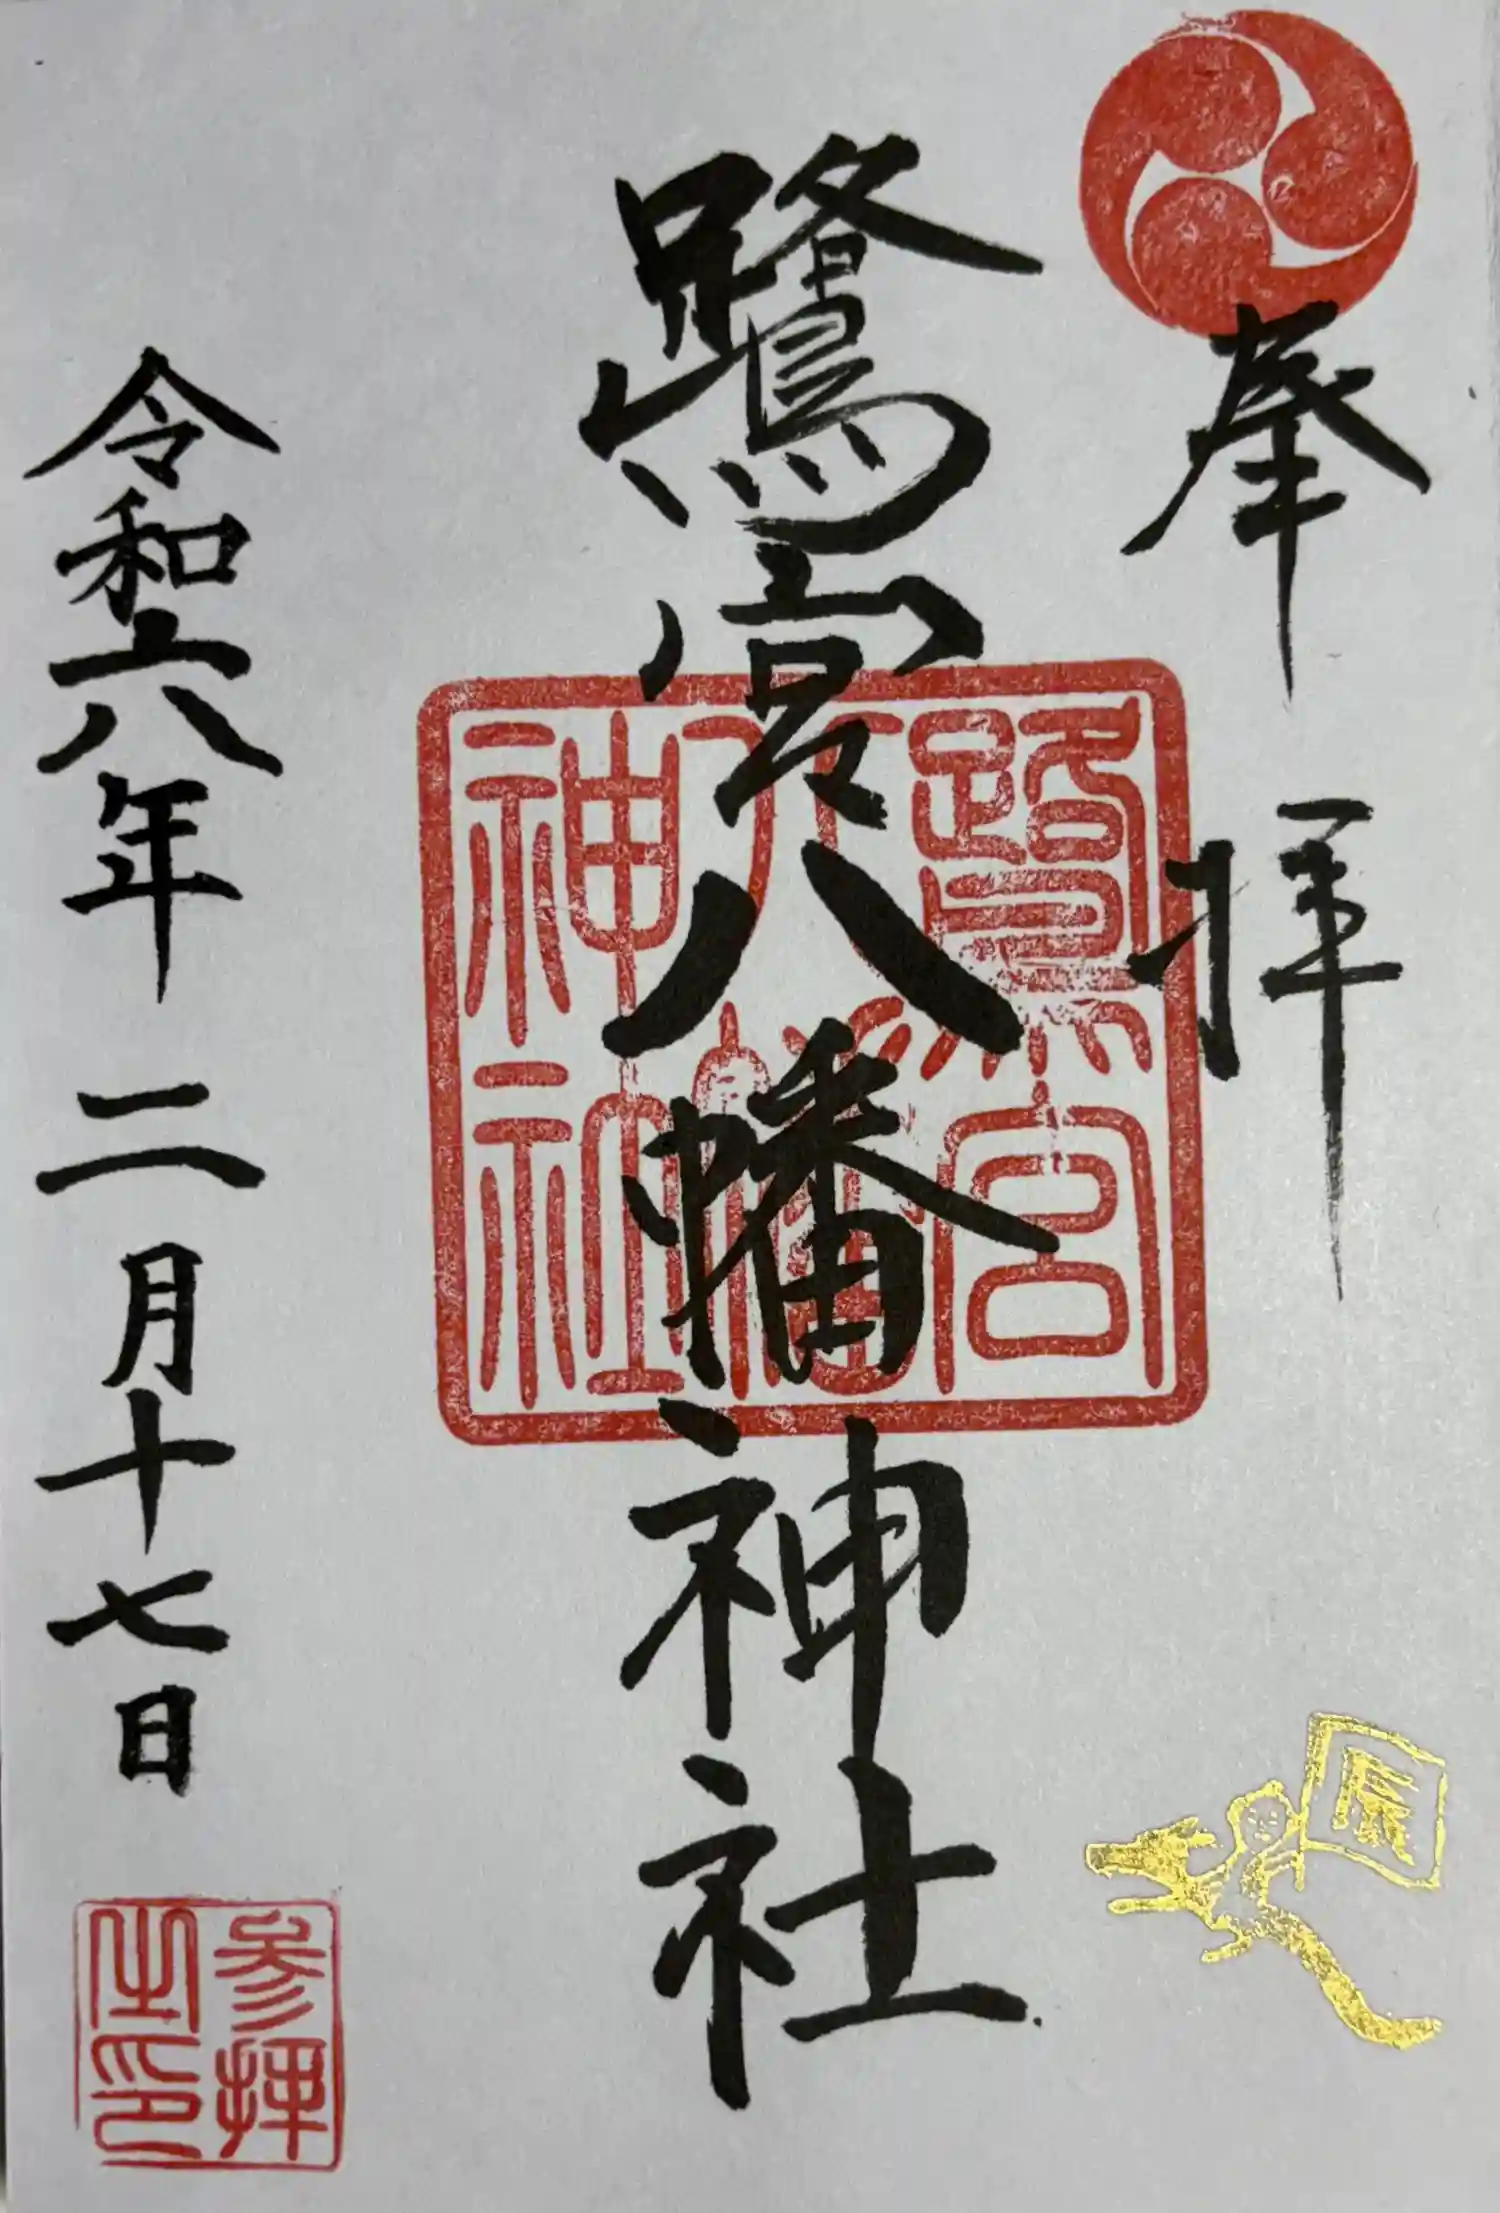 奉拝
鷺宮八幡神社
鷺宮
八幡
神社
令和六年二月十七日
参拝
之印